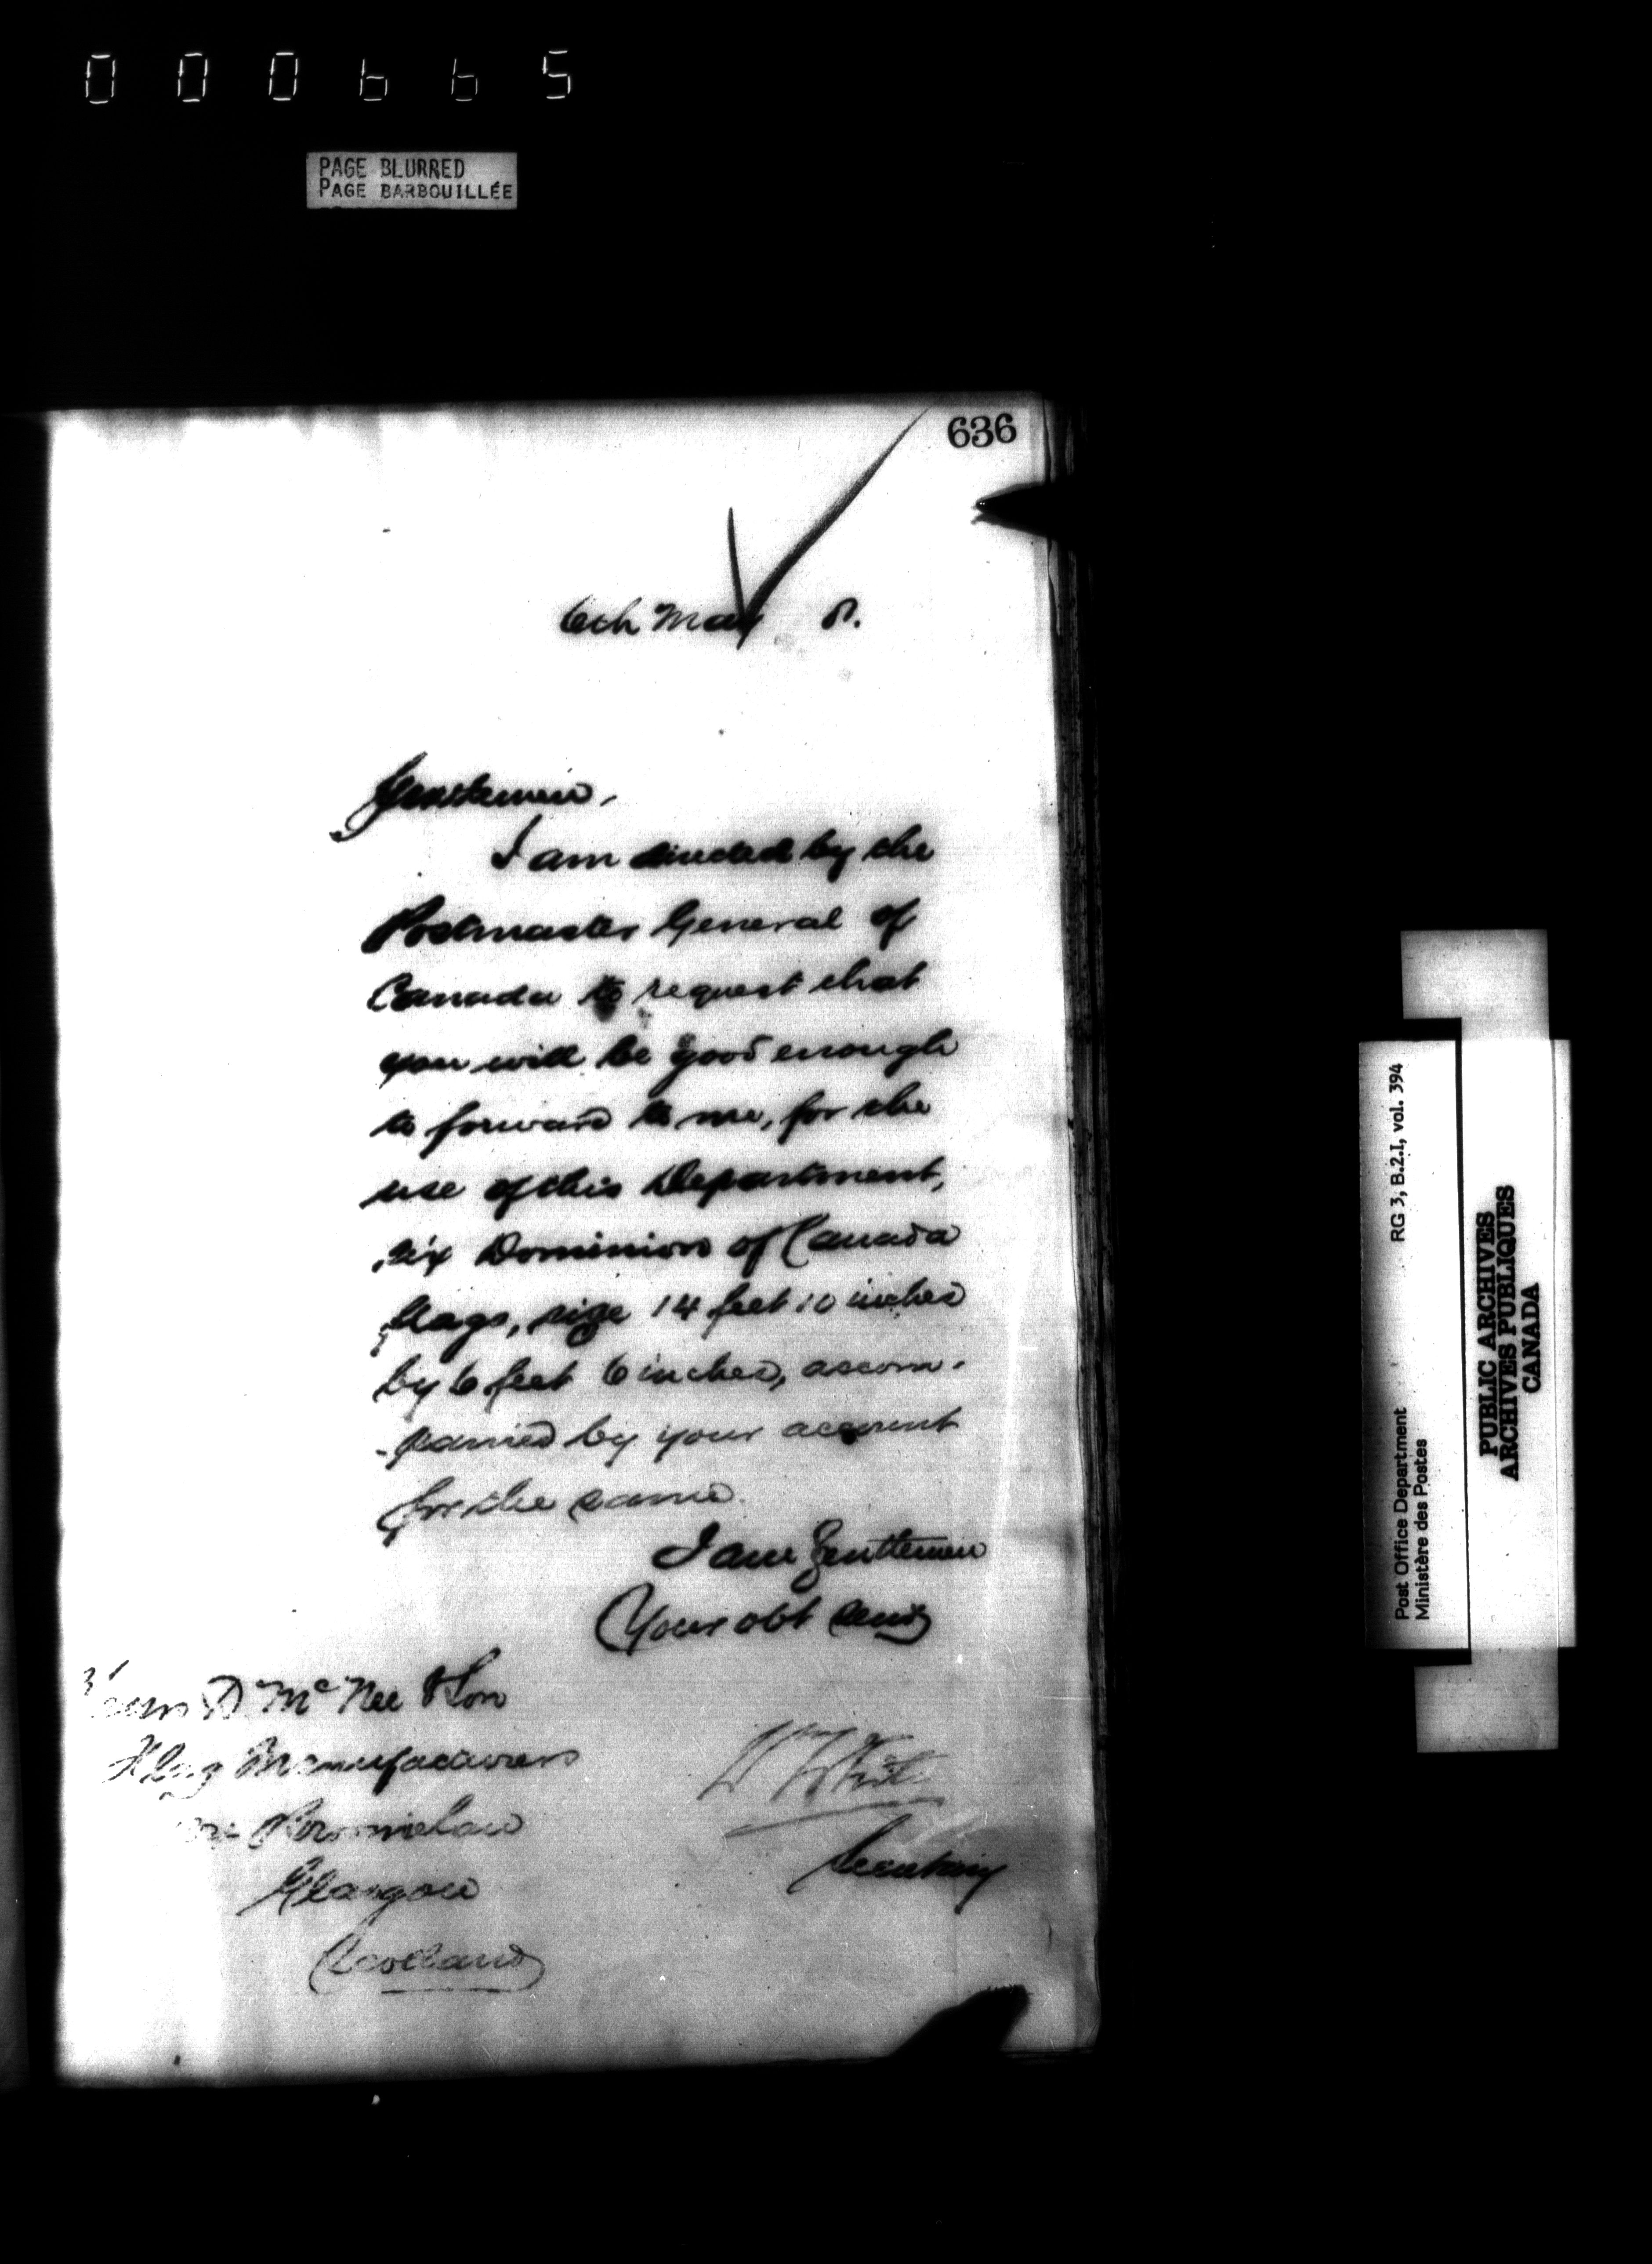 000665
PAGE BLURRED
PAGE BARBOUILLÉE
636
6th May
Gentlemen,
I am directed by the
Postmaster General of
Canada to request that
you will be good enough
to forward to me, for the
use of this Department,
six Dominion of Canada
flags, size 14 feet 10 inches
by 6 feet 6 inches, accom-
-panied by your account
for the same.
I am Gentlemen
Your obt servt
D. McNee & Son
Flag Manufacturers
Broomielaw
Glasgow
Scotland
Secretary
Post Office Department RG 3, B.2.I, vol. 394
Ministère des Postes
PUBLIC ARCHIVES
ARCHIVES PUBLIQUES
CANADA